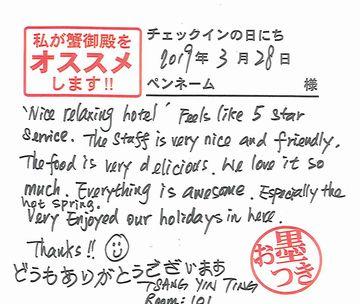 私が蟹御殿を
オススメ
します!!
チェックインの日にち
2019年 3月28日
ペンネーム 様
'Nice relaxing hotel' Feels like 5 star
service. The staff is very nice and friendly.
The food is very delicious. We love it so
much. Everything is awesome. Especially the
hot spring.
Very Enjoyed our holidays in here.
Thanks!!
どうもありがとうございます
TSANG YIN TING
Room: 101
お墨
つき